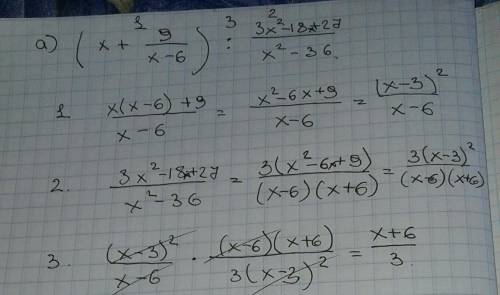 а) (x + 9/(x-6)) : (3x²-18x+27)/(x²-36)
1 2 3
1. (x(x-6)+9)/(x-6) = (x²-6x+9)/(x-6) = (x-3)²/(x-6)
2. (3x²-18x+27)/(x²-36) = 3(x²-6x+9)/((x-6)(x+6)) = 3(x-3)²/((x-6)(x+6))
3. (x-3)²/(x-6) · (x-6)(x+6)/(3(x-3)²) = (x+6)/3